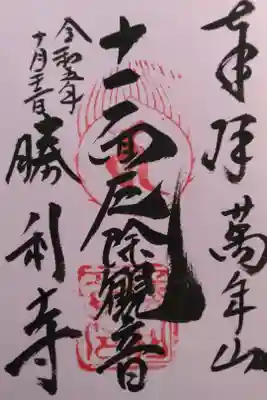 奉拝 萬年山
十一面厄除観音
令和五年
十月十三日
勝利寺